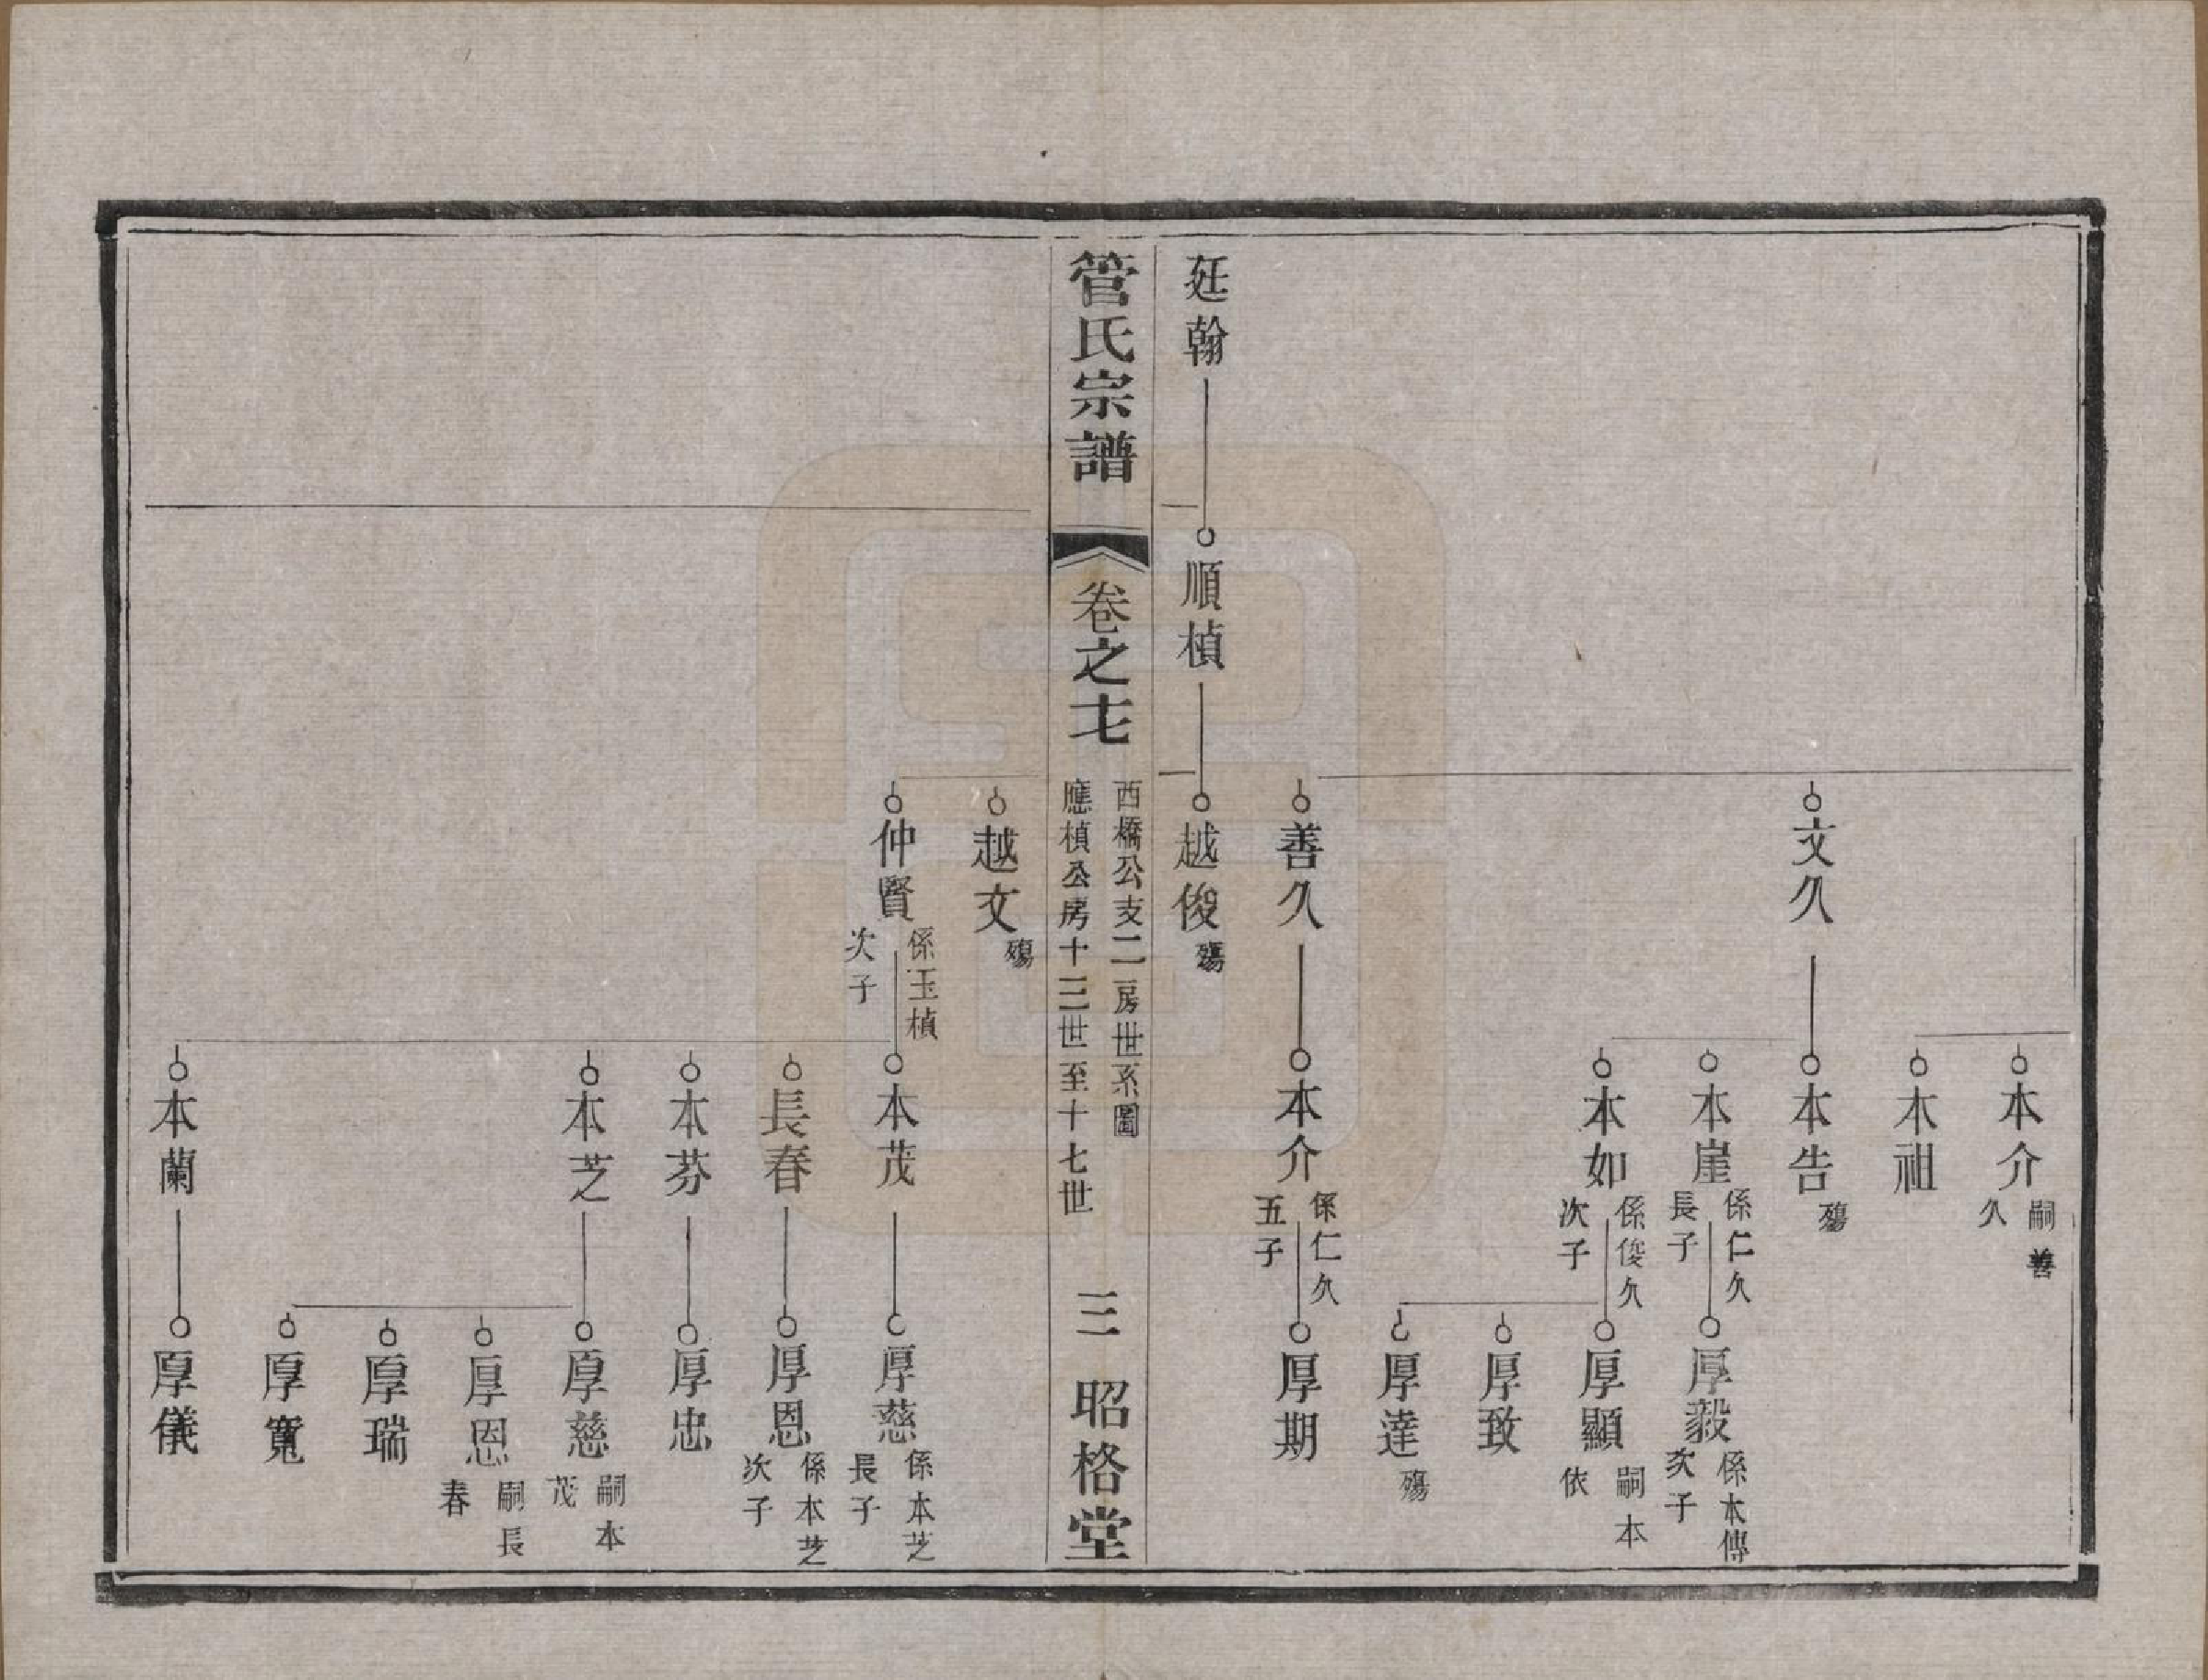 本介
嗣善
久
本祖
文久
本告
殤
本崖
係仁久
長子
厚毅
係本傳
次子
本如
係俊久
次子
厚顯
嗣本
依
厚致
厚達
殤
善久
本介
係仁久
五子
厚期
廷翰
順楨
越俊
殤
管氏宗譜
卷之七
西橋公支二房世系圖
應楨公房十三世至十七世
三
昭格堂
越文
殤
仲賢
係玉楨
次子
本茂
厚慈
係本芝
長子
長春
厚恩
係本芝
次子
本芬
厚忠
本芝
厚慈
嗣本
茂
厚恩
嗣長
春
厚瑞
厚寬
本蘭
厚儀